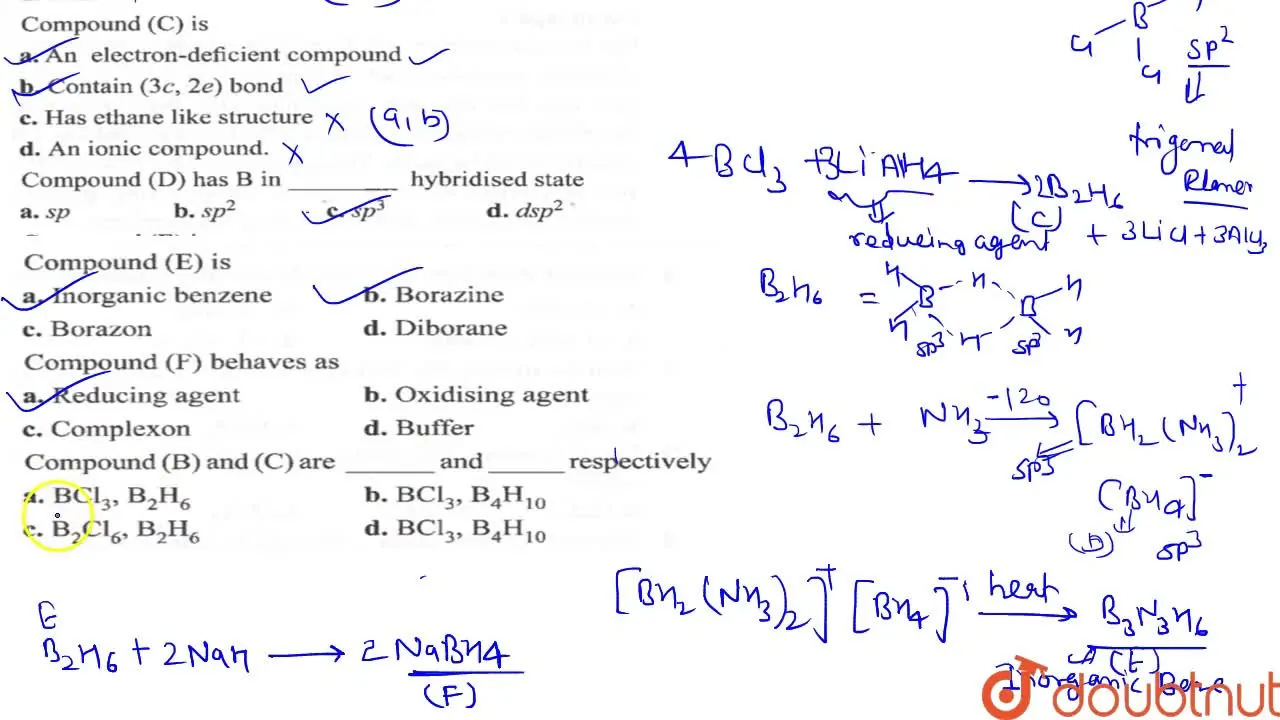 Compound (C) is
a. An electron-deficient compound
b. Contain (3c, 2e) bond
c. Has ethane like structure × (a, b)
d. An ionic compound. ×
Compound (D) has B in ________ hybridised state
a. sp b. sp² c. sp³ d. dsp²
Compound (E) is
a. Inorganic benzene b. Borazine
c. Borazon d. Diborane
Compound (F) behaves as
a. Reducing agent b. Oxidising agent
c. Complexon d. Buffer
Compound (B) and (C) are ______ and _____ respectively
a. BCl₃, B₂H₆ b. BCl₃, B₄H₁₀
c. B₂Cl₆, B₂H₆ d. BCl₃, B₄H₁₀
E
B₂H₆ + 2NaH ⟶ 2NaBH4
(F)
B
Cl
Cl
sp²
trigonal
Planer
4BCl₃ + 3LiAlH4 ⟶ 2B₂H₆
(C)
reducing agent + 3LiCl + 3AlCl₃
B₂H₆ =
H H H
B B
H H H
sp³ sp³
B₂H₆ + NH₃ -120 ⟶ [BH₂(NH₃)₂]⁺
sp3
[BH4]⁻
(D) sp³
[BH₂(NH₃)₂]⁺ [BH4]⁻ heat ⟶ B₃N₃H₆
(E)
Inorganic
doubtnut